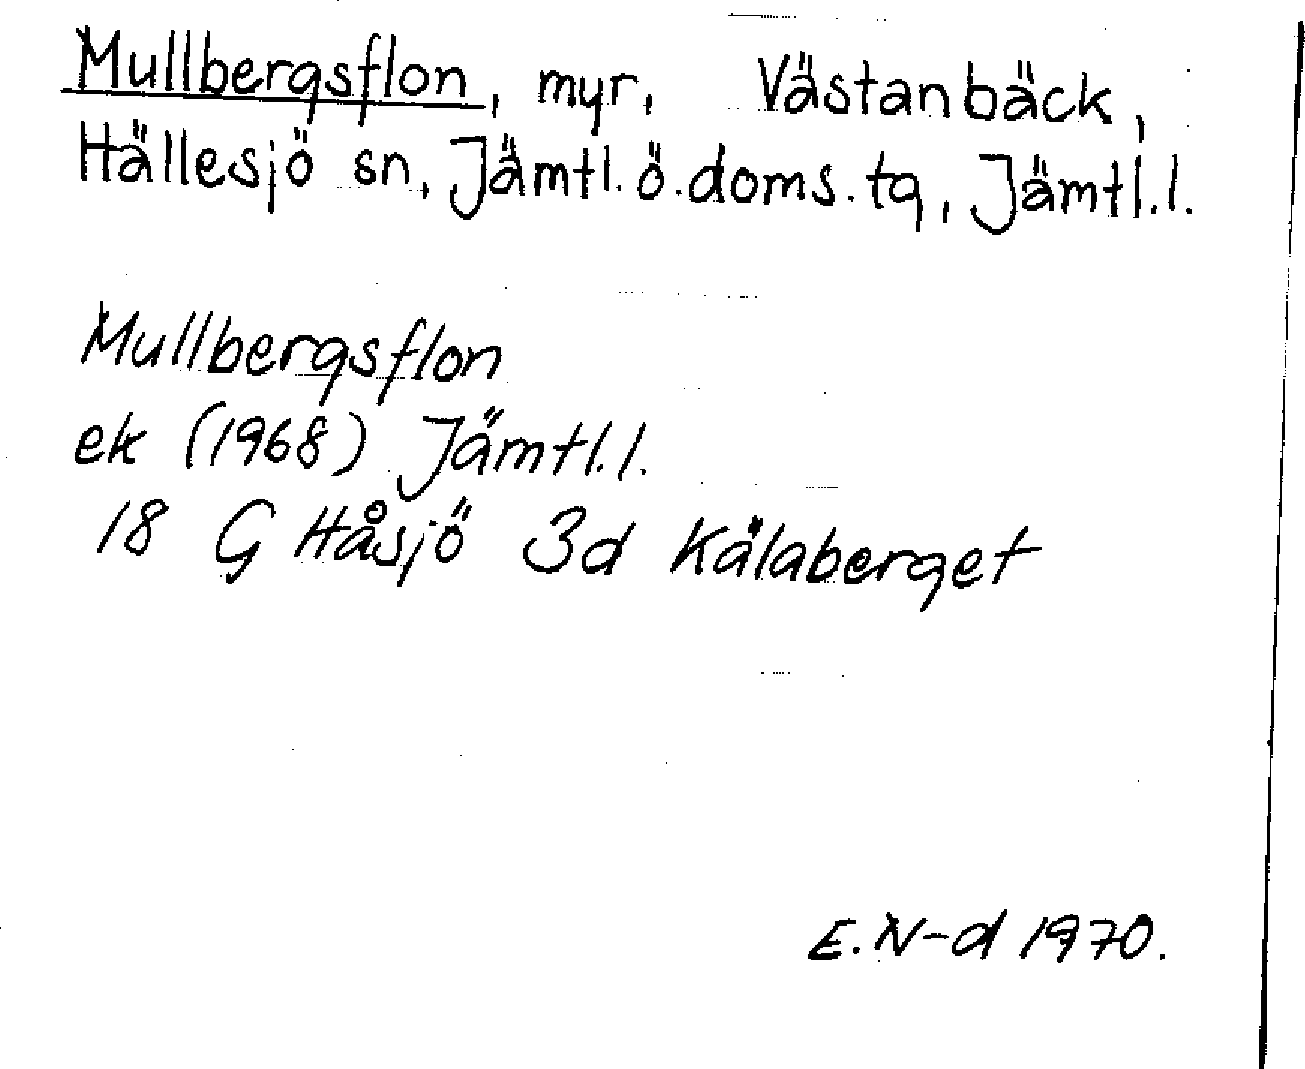 Mullbergsflon, myr, Västanbäck,
Hällesjö sn, Jämtl. ö. doms. tg, Jämtl. l.
Mullbergsflon
ek (1968) Jämtl. l.
18 G Håsjö 3d Kålaberget
E. N-d 1970.